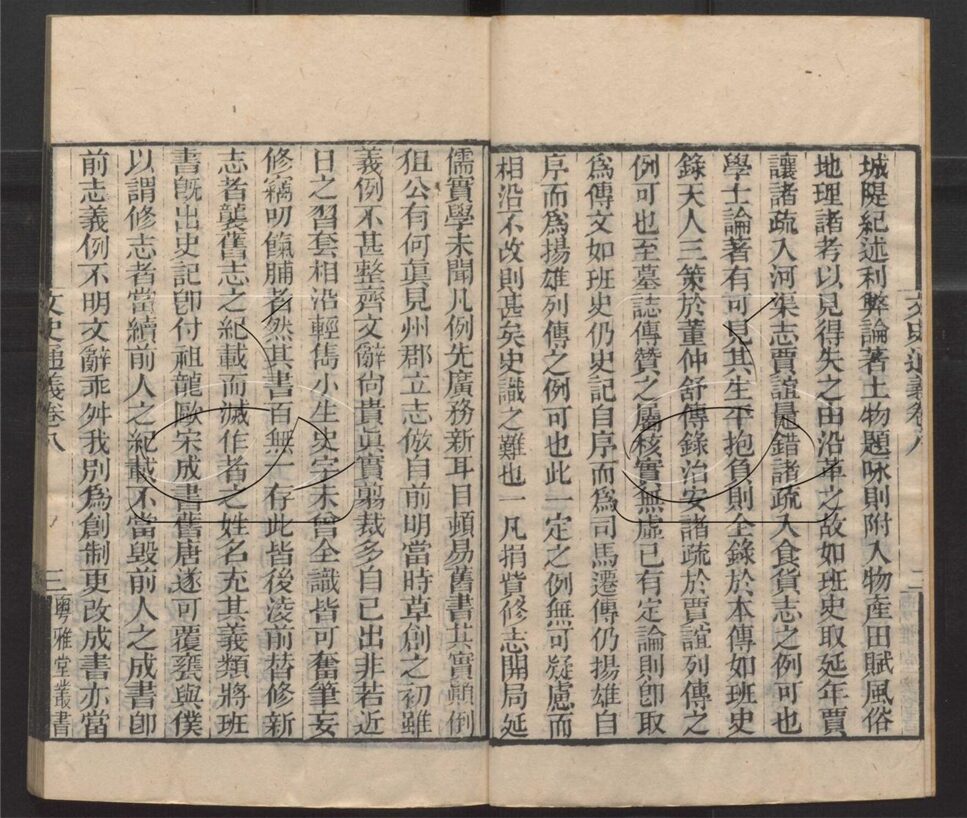 文史通義卷八
二
城隄紀述利弊論著土物題咏則附入物產田賦風俗
地理諸考以見得失之由沿革之故如班史取延年賈
讓諸疏入河渠志賈誼鼂錯諸疏入食貨志之例可也
學士論著有可見其生平抱負則全錄於本傳如班史
錄天人三策於董仲舒傳錄治安諸疏於賈誼列傳之
例可也至墓誌傳贊之屬核實無虛已有定論則卽取
爲傳文如班史仍史記自序而爲司馬遷傳仍揚雄自
序而爲揚雄列傳之例可也此一定之例無可疑慮而
相沿不改則甚矣史識之難也一凡捐貲修志開局延
儒實學未聞凡例先廣務新耳目頓易舊書其實顚倒
狙公有何眞見州郡立志倣自前明當時草創之初雖
義例不甚整齊文辭尙貴眞實翦裁多自己出非若近
日之習套相沿輕雋小生史字未曾全識皆可奮筆妄
修竊叨餼脯者然其書百無一存此皆後凌前替修新
志者襲舊志之紀載而滅作者之姓名充其義類將班
書旣出史記卽付祖龍歐宋成書舊唐遂可覆甕與僕
以謂修志者當續前人之紀載不當毀前人之成書卽
前志義例不明文辭乖舛我別爲創制更改成書亦當
文史通義卷八
三
粤雅堂叢書